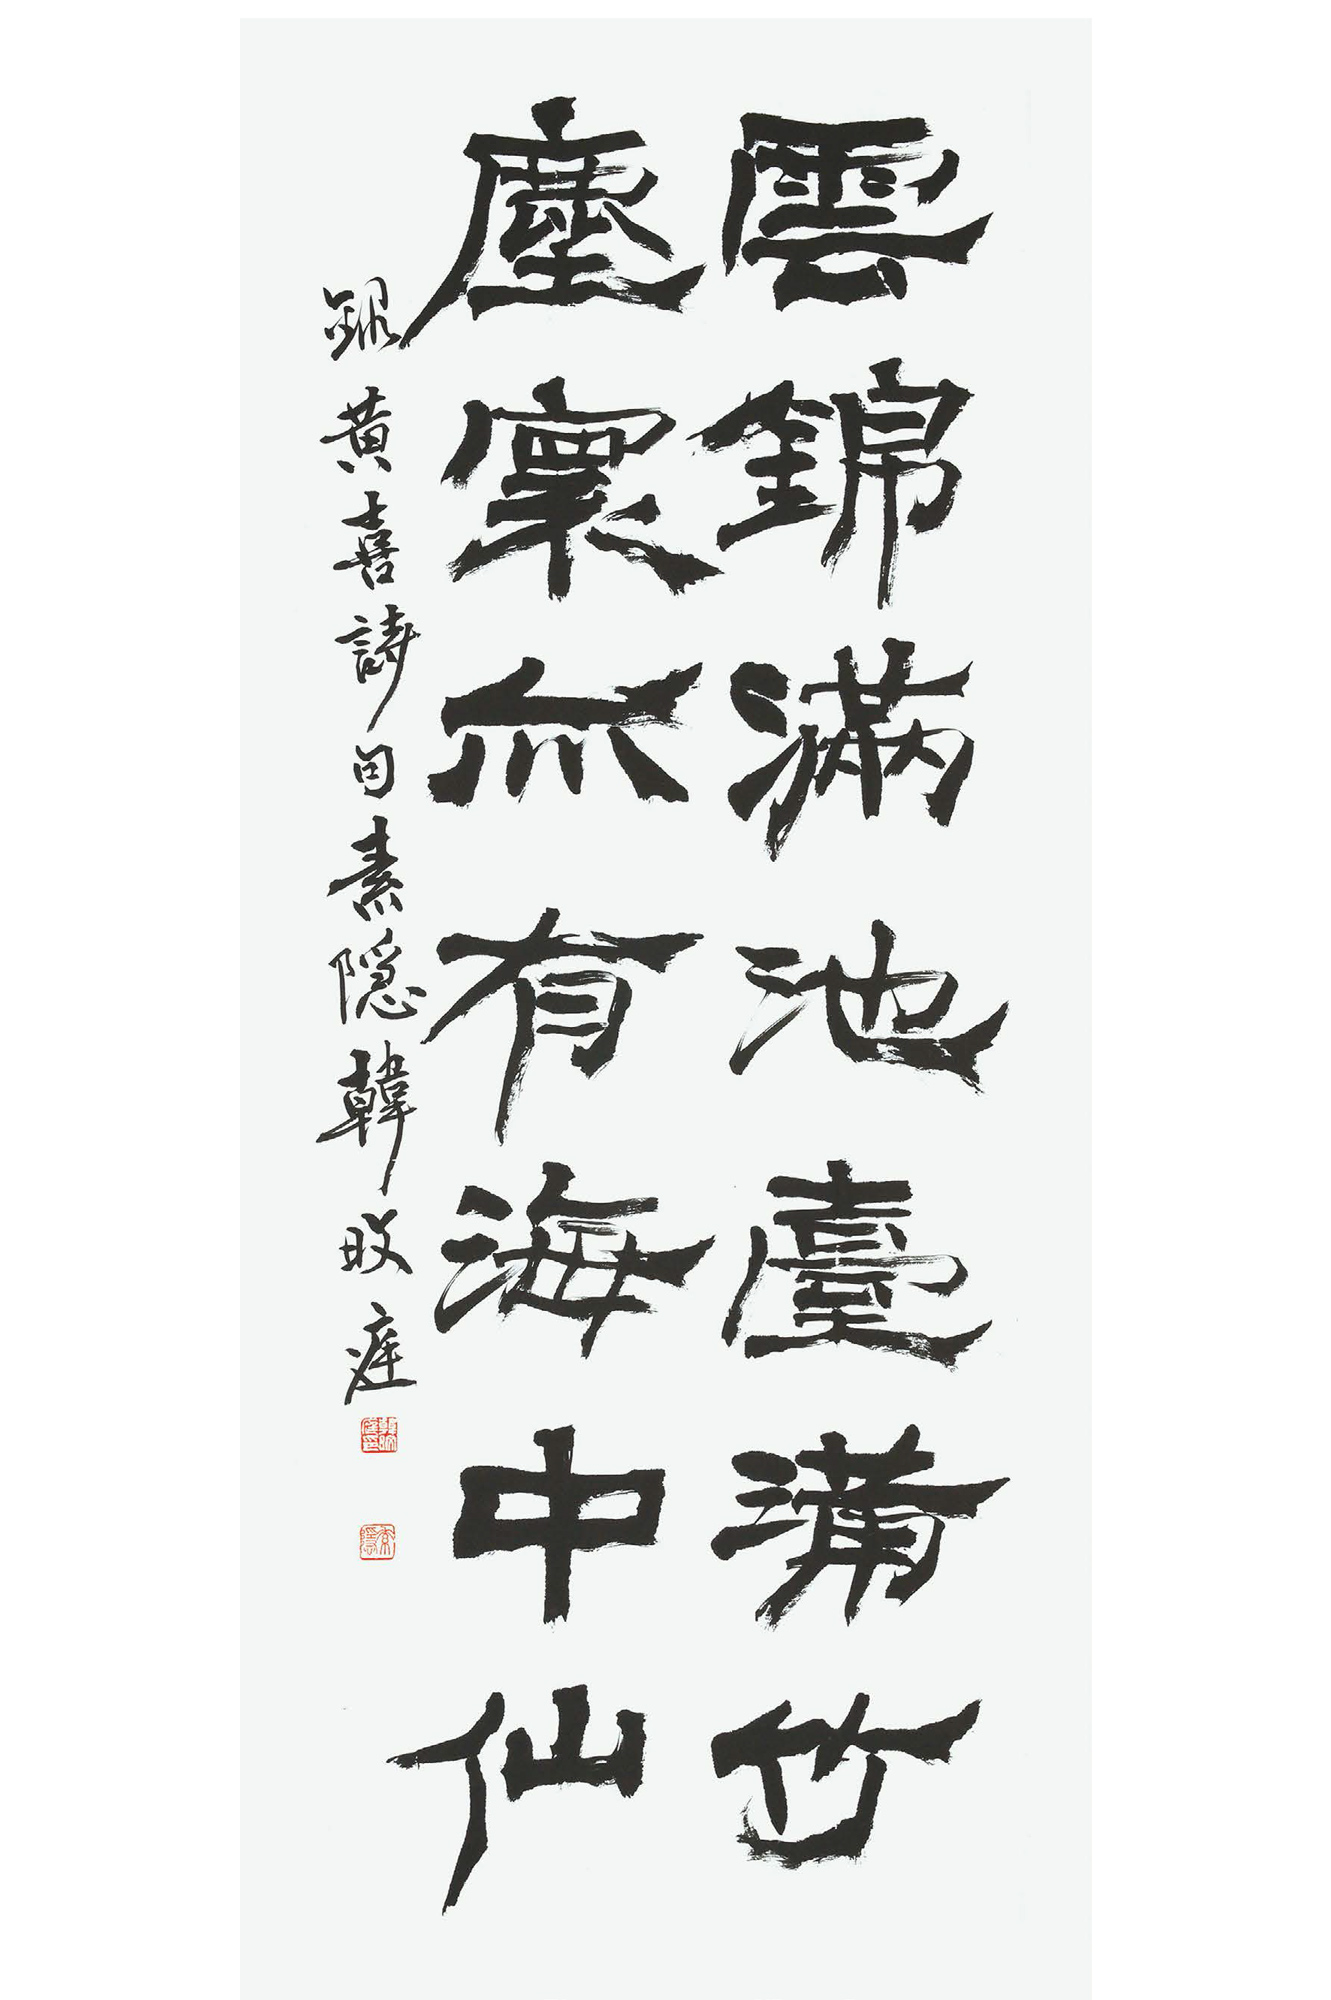 雲錦滿池臺滿竹
塵寰亦有海中仙
錄黃喜詩句素隱韓旼庭
素隱